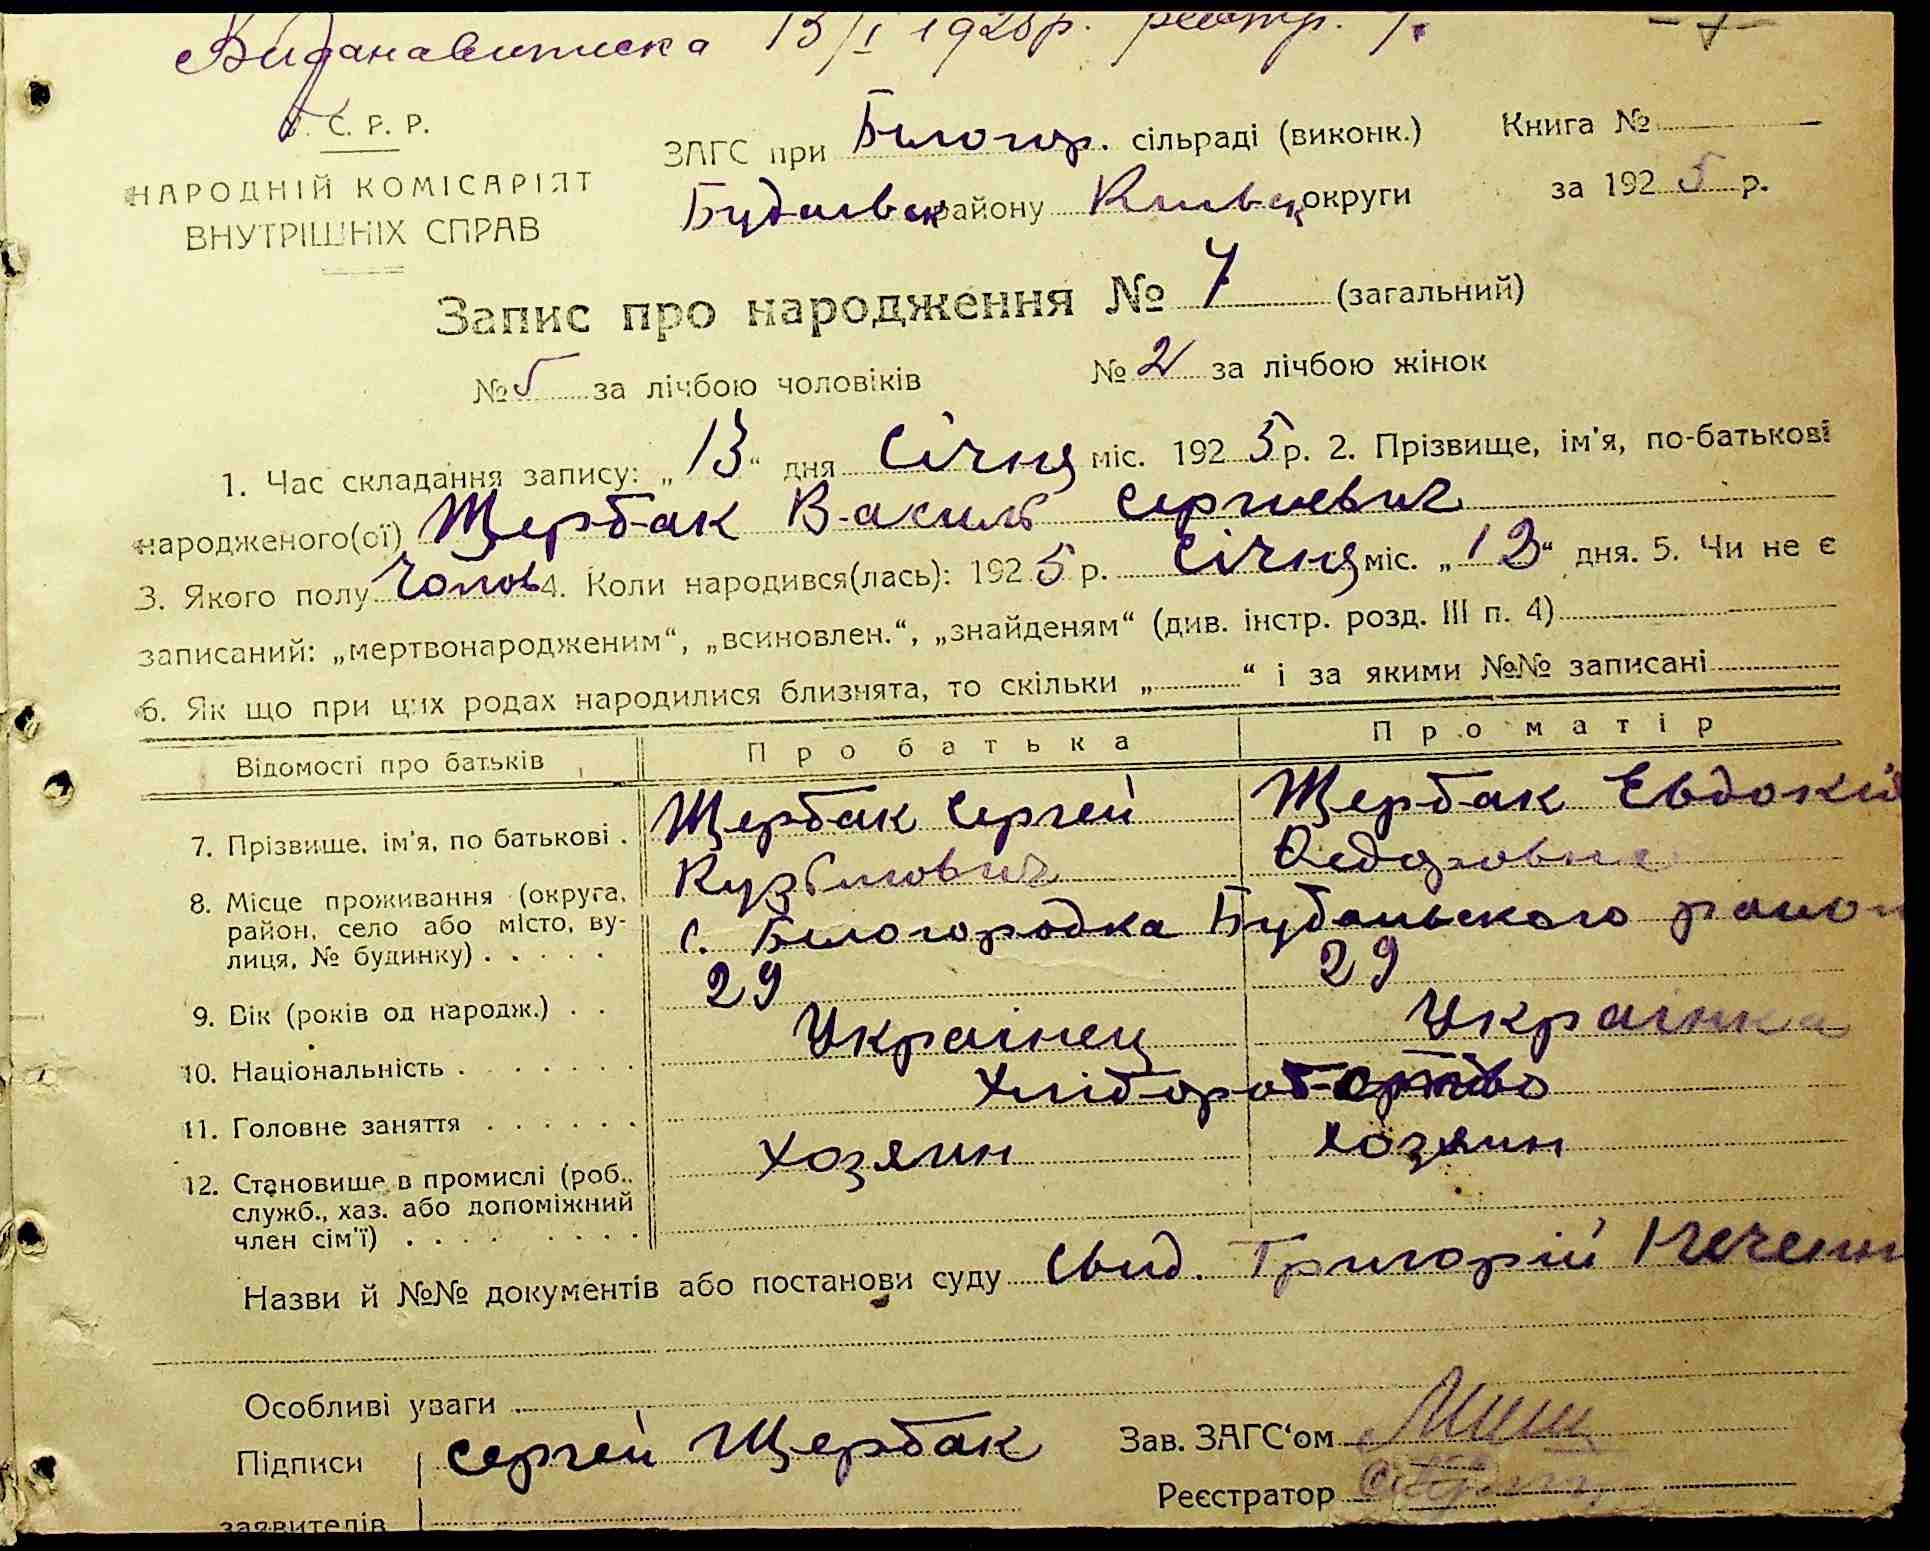 Видана виписка 13/I 1925р. реєстр. 7.
С. Р. Р.
НАРОДНІЙ КОМІСАРІЯТ
ВНУТРІШНІХ СПРАВ
ЗАГС при Білогор. сільраді (виконк.)
Будаївськ району Київськ округи
Книга №
за 1925 р.
Запис про народження № 7 (загальний)
№ 5 за лічбою чоловіків № 2 за лічбою жінок
1. Час складання запису: „13“ дня Січня міс. 1925 р. 2. Прізвище, ім'я, по-батькові
народженого(ої) Щербак Василь Сергиевич
3. Якого полу Чолов 4. Коли народився(лась): 1925 р. Січня міс. „13“ дня. 5. Чи не є
записаний: „мертвонародженим“, „всиновлен.“, „знайденям“ (див. інстр. розд. III п. 4)
6. Як що при цих родах народилися близнята, то скільки „ “ і за якими №№ записані
Відомості про батьків Про батька Про матір
7. Прізвище, ім'я, по батькові . Щербак Сергей Щербак Евдокія
Кузьмович Федоровна
8. Місце проживання (округа,
район, село або місто, ву-
лиця, № будинку) . . . . . с. Білогородка Будаьского район
9. Вік (років од народж.) . . 29 29
10. Національність . . . . . . . Украінец Украінка
11. Головне заняття . . . . . . Хліборобство
12. Становище в промислі (роб.,
служб., хаз. або допоміжний
член сім'ї) . . . . . . . . Хозяин Хозяин
Назви й №№ документів або постанови суду Свид. Григорій
Особливі уваги
Підписи Сергей Щербак
заявителів
Зав. ЗАГС'ом
Реєстратор